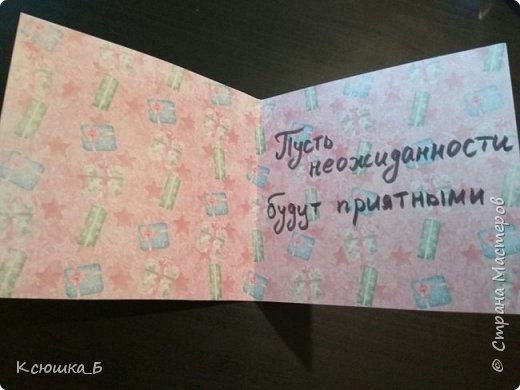 Пусть
неожиданности
будут приятными
Ксюшка_Б
© Страна Мастеров